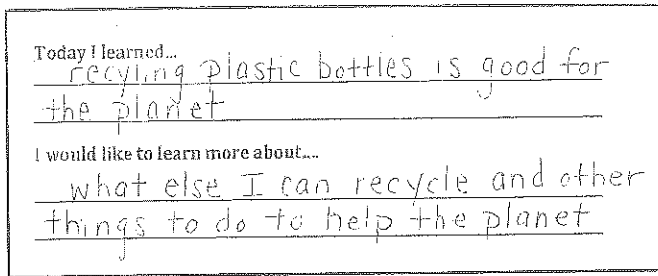 Today I learned...
recyling plastic bottles is good for
the planet
I would like to learn more about....
what else I can recycle and other
things to do to help the planet